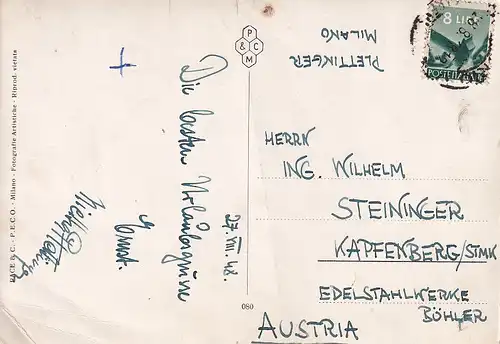 P & C M
8 LIRE
POSTE ITALIANE
PLETTINGER
MILANO
Die besten Urlaubsgrüsse
Ernst.
27. VIII. 48.
HERRN
ING. WILHELM
STEININGER
KAPFENBERG/STMK
EDELSTAHLWERKE
BÖHLER
AUSTRIA
080
PACE B. C. - P.E.C.O. - Milano - Fotografie Artistiche - Riprod. vietata